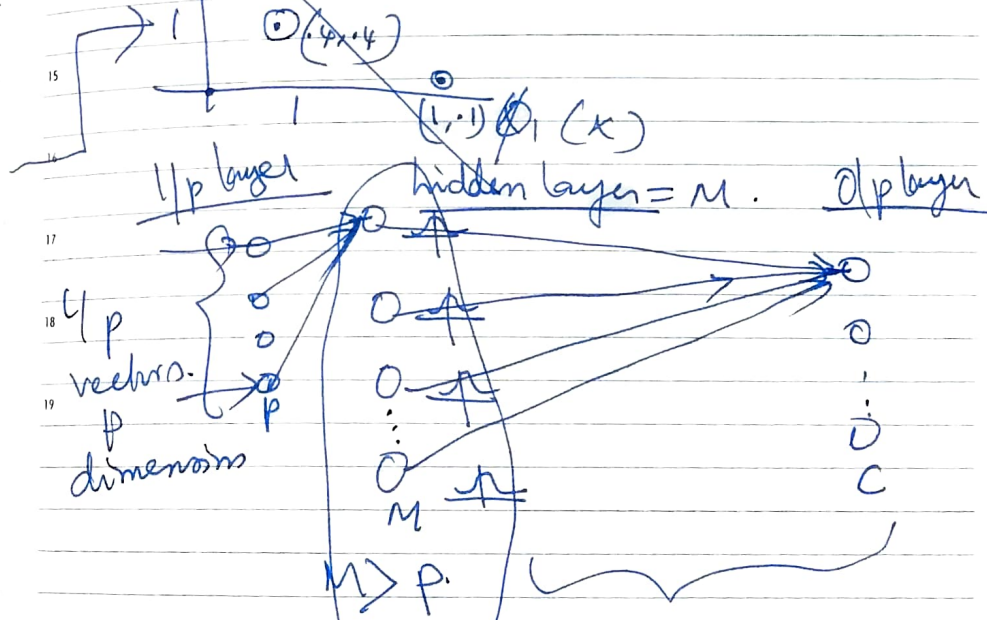 1 (.4, .4)
15
1 (1, .1) φ₁ (x)
16
I/p layer hidden layer = M. O/p layer
17
I/p
18
vectors.
19
p
p
dimensions
M C
M > p.